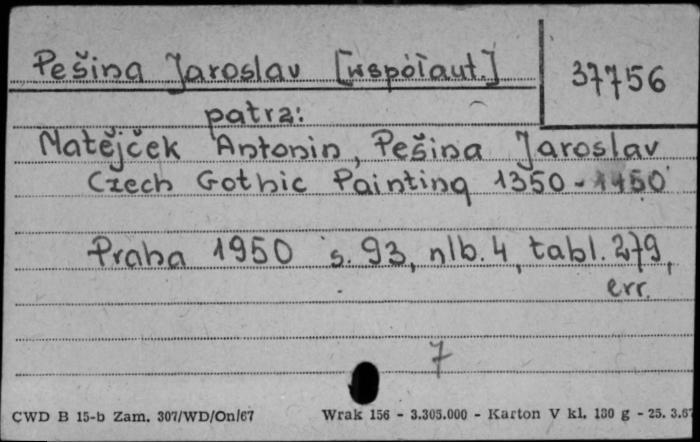 Pešina Jaroslav [współaut.] 37756
patrz:
Matějček Antonin, Pešina Jaroslav
Czech Gothic Painting 1350-1450
Praha 1950 s. 93, nlb. 4, tabl. 279,
err.
7
CWD B 15-b Zam. 307/WD/On/67 Wrak 156 - 3.305.000 - Karton V kl. 180 g - 25. 3.67